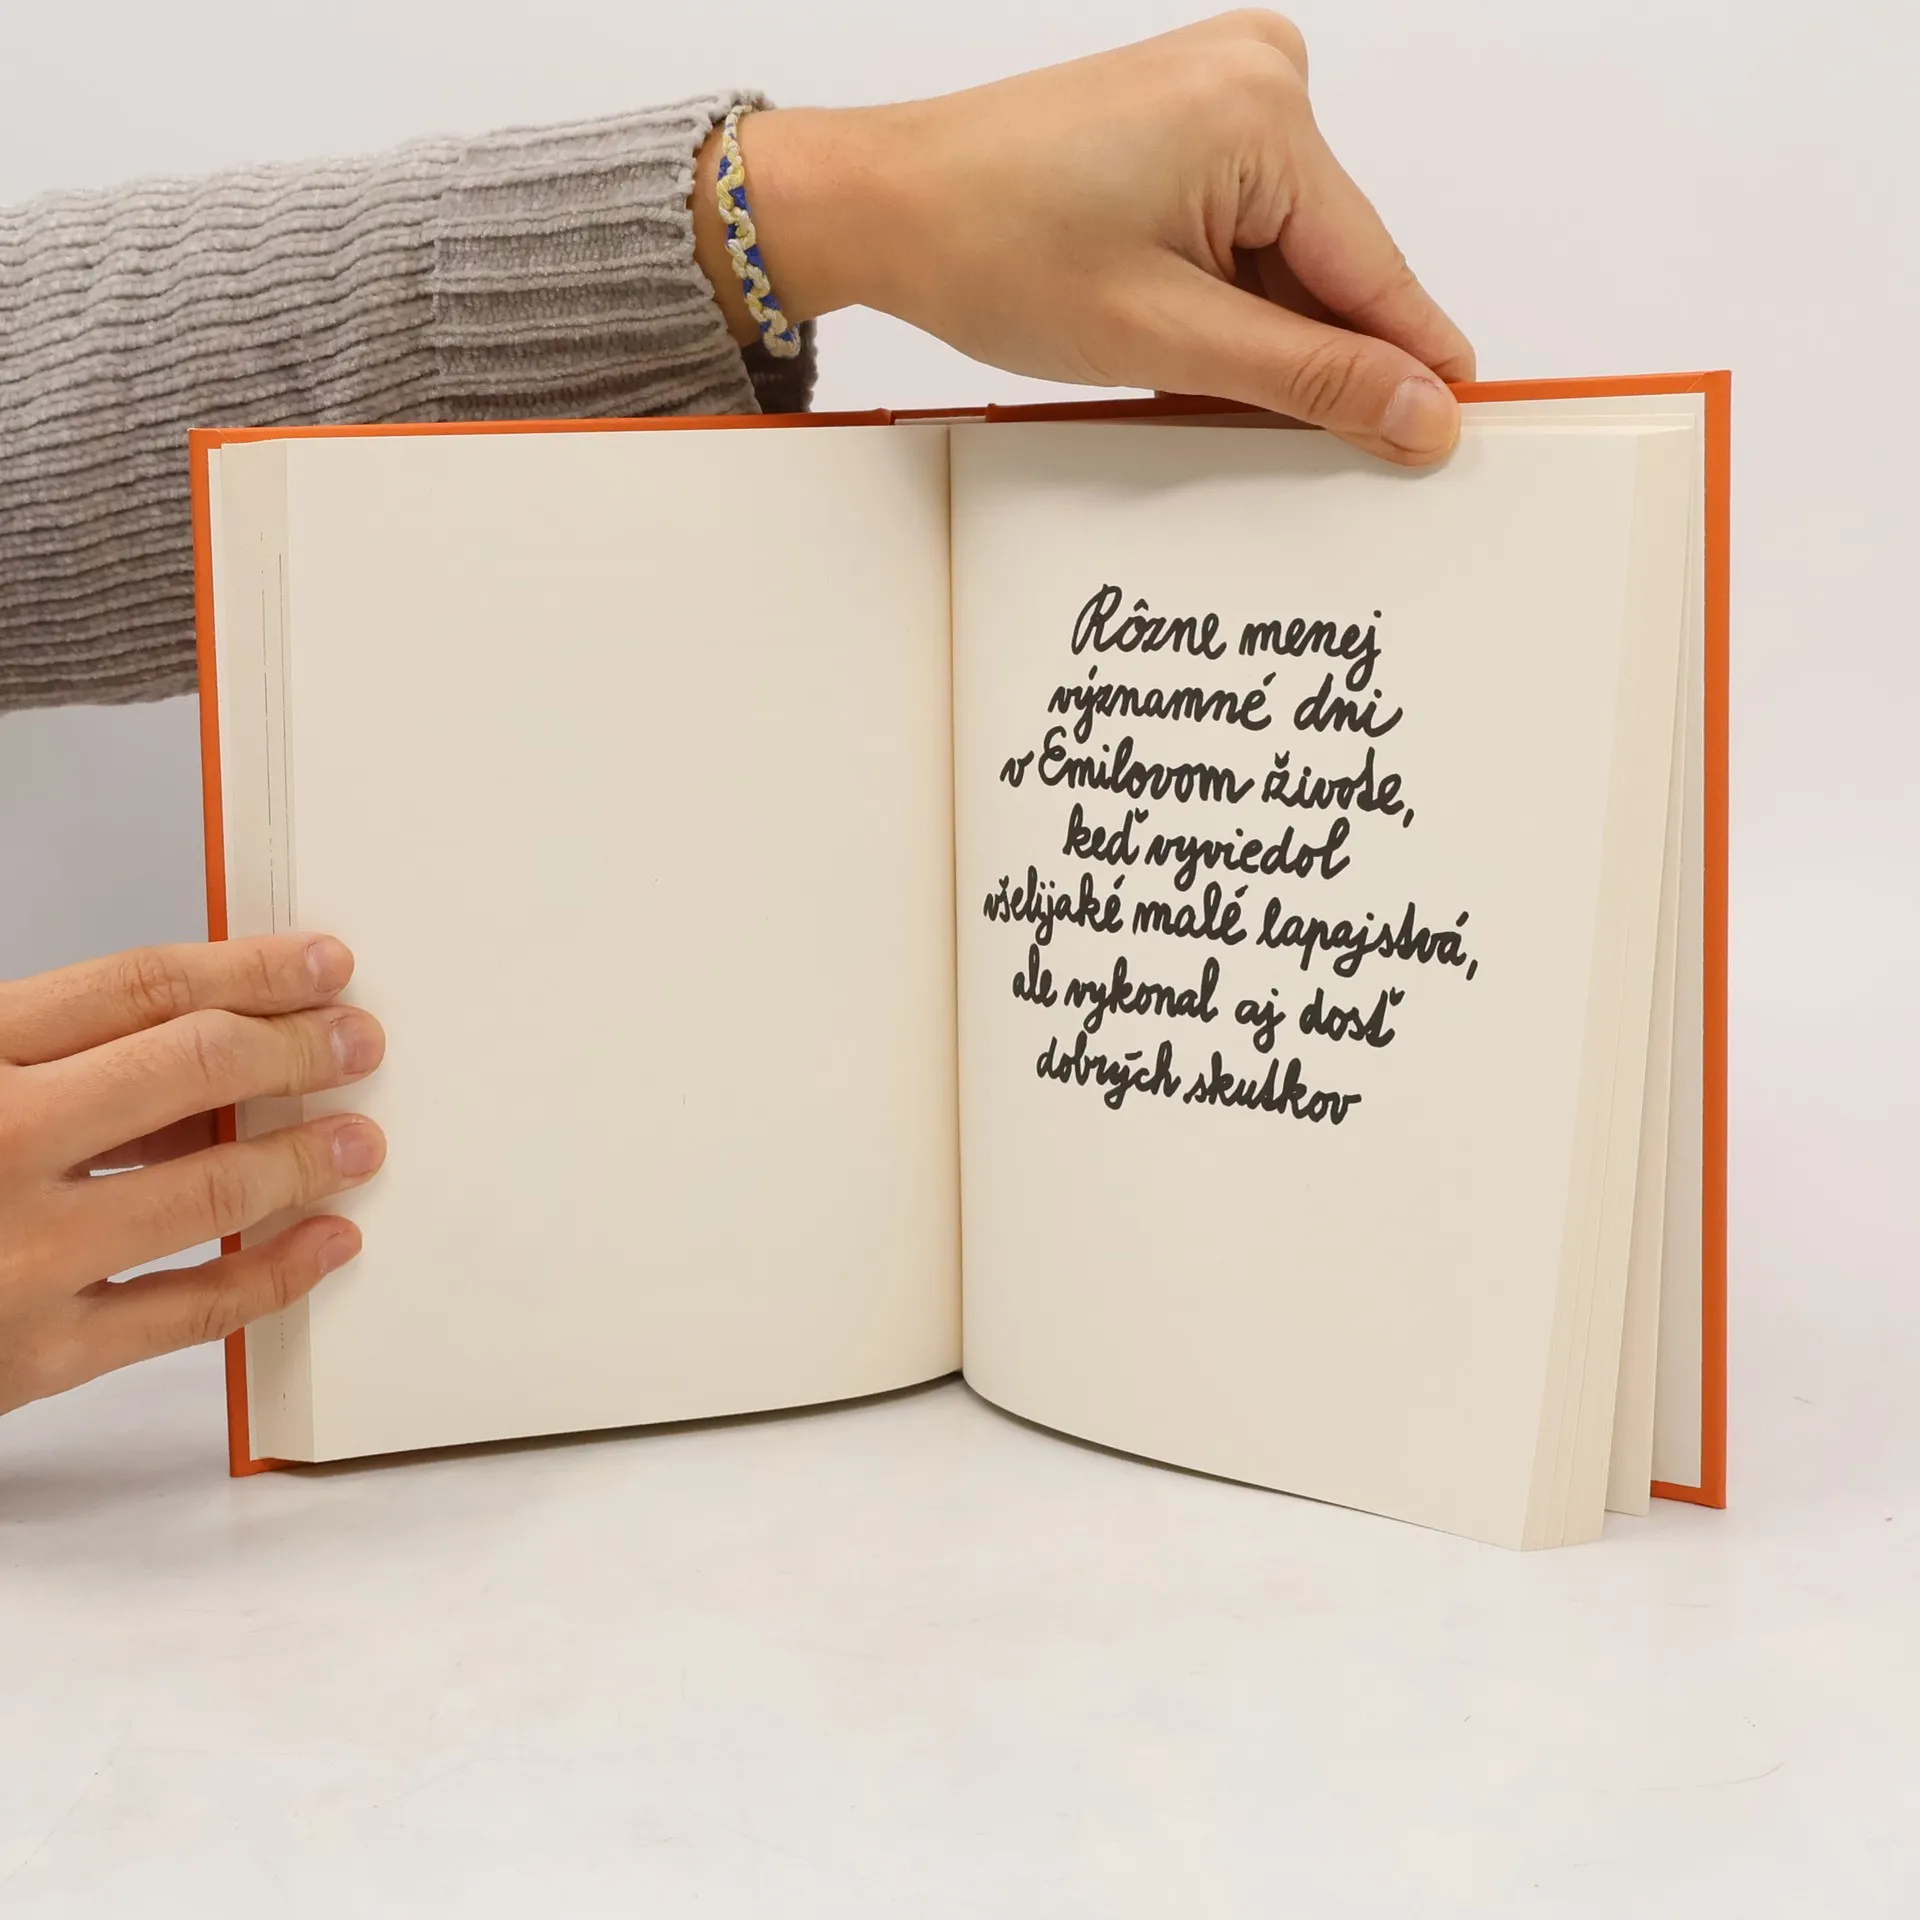 Rôzne menej
významné dni
v Emilovom živote,
keď vyviedol
všelijaké malé lapajstvá,
ale vykonal aj dosť
dobrých skutkov